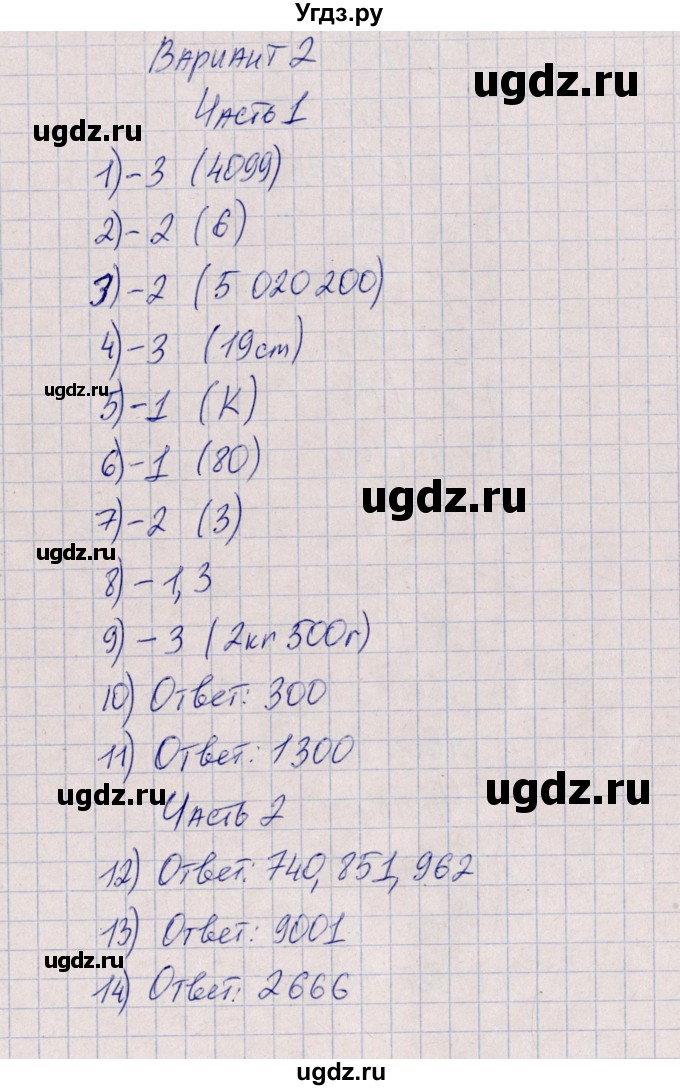 Угдз.ру
Вариант 2
ugdz.ru
Часть 1
ugdz.ru
1) - 3 (4099)
2) - 2 (6)
3) - 2 (5 020 200)
4) - 3 (19 cm)
ugdz.ru
5) - 1 (К)
6) - 1 (80)
ugdz.ru
7) - 2 (3)
ugdz.ru
8) - 1, 3
9) - 3 (2кг 500г)
10) Ответ: 300
11) Ответ: 1300
ugdz.ru
ugdz.ru
Часть 2
12) Ответ: 740, 851, 962
13) Ответ: 9001
ugdz.ru
14) Ответ: 2666
ugdz.ru